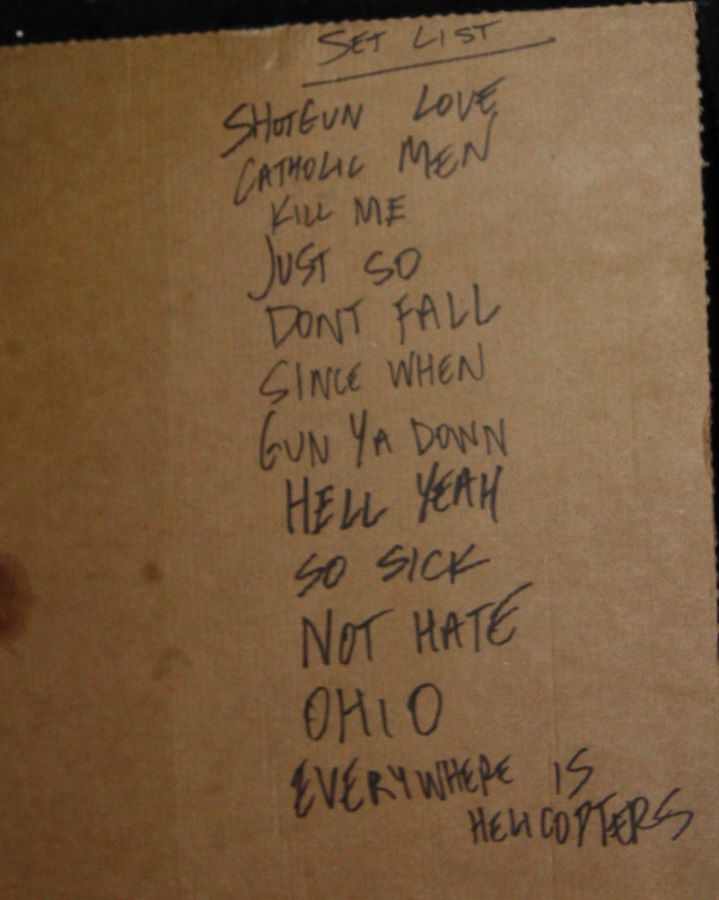 SET LIST
SHOTGUN LOVE
CATHOLIC MEN
KILL ME
JUST SO
DONT FALL
SINCE WHEN
GUN YA DOWN
HELL YEAH
SO SICK
NOT HATE
OHIO
EVERYWHERE IS
HELICOPTERS